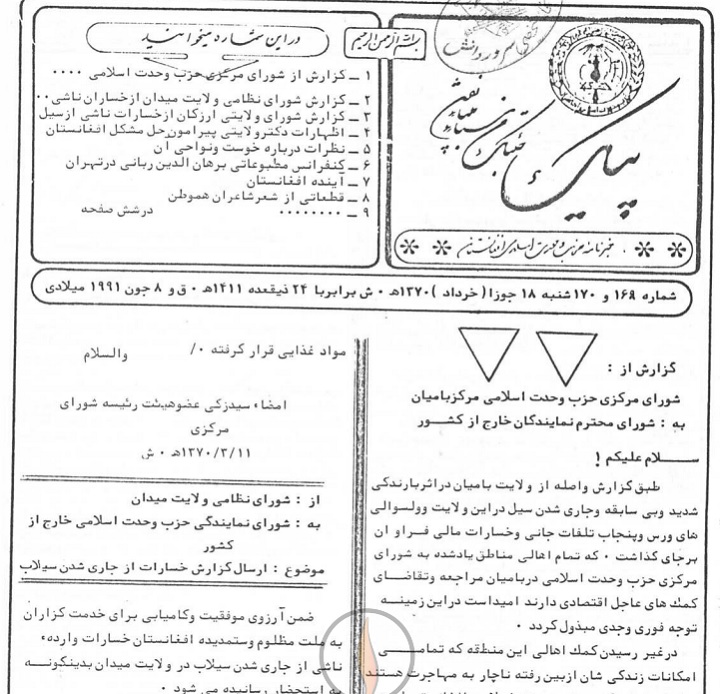 بسم الله الرحمن الرحیم
پیک
خبرنامه حزب وحدت اسلامی افغانستان
در این شماره میخوانید
۱ ــ گزارش از شورای مرکزی حزب وحدت اسلامی ۰۰۰۰
۲ ــ گزارش شورای نظامی ولایت میدان ازخساران ناشی۰۰
۳ ــ گزارش شورای ولایتی ارزگان ازخسارات ناشی ازسیل
۴ ــ اظهارات دکترولایتی پیرامون‌حل مشکل افغانستان
۵ ــ نظرات درباره خوست ونواحی ان
۶ ــ کنفرانس مطبوعاتی برهان الدین ربانی درتهران
۷ ــ آینده افغانستان
۸ ــ قطعاتی از شعرشاعران هموطن
۹ ــ ۰۰۰۰۰۰۰۰ درشش صفحه
شماره ۱۶۹ و ۱۷۰ شنبه ۱۸ جوزا( خرداد )۱۳۷۰ه‍ ۰ ش برابربا ۲۴ ذیقعده ۱۴۱۱ه‍ ۰ ق و ۸ جون ۱۹۹۱ میلادی
گزارش از :
شورای مرکزی حزب وحدت اسلامی مرکزبامیان
به : شورای محترم نمایندگان خارج از کشــور
ســـلام علیکم !
طبق گزارش واصله از ولایت بامیان دراثربارندگی
شدید وبی سابقه وجاری شدن سیل دراین ولایت وولسوالی
های ورس وپنجاب تلفات جانی وخسارات مالی فراو ان
برجای گذاشت ۰ که تمام اهالی مناطق یادشده به شورای
مرکزی حزب وحدت اسلامی دربامیان مراجعه وتقاضــای
کمك های عاجل اقتصادی دارند امیداست دراین زمینــه
توجه فوری وجدی مبذول گردد ۰
درغیر رسیدن کمك اهالی این منطقه که تمامــــی
امکانات زندگی شان ازبین رفته ناچار به مهاجرت هستند
مواد غذایی قرار گرفته ۰/ والسلام
امضاء سیدزکی عضوهیئت رئیسه شورای
مرکزی
۱۳۷۰/۳/۱۱ه‍ ۰ ش
از : شورای نظامی ولایت میدان
به : شورای نمایندگی حزب وحدت اسلامی خارج از
کشور
موضوع : ارسال گزارش خسارات از جاری شدن سیلاب
ضمن آرزوی موفقیت وکامیابی برای خدمت گزاران
به ملت مظلوم وستمدیده افغانستان خسارات وارده
ناشی از جاری شدن سیلاب در ولایت میدان بدینگونــه
به استحضار رسانیده می شود ۰